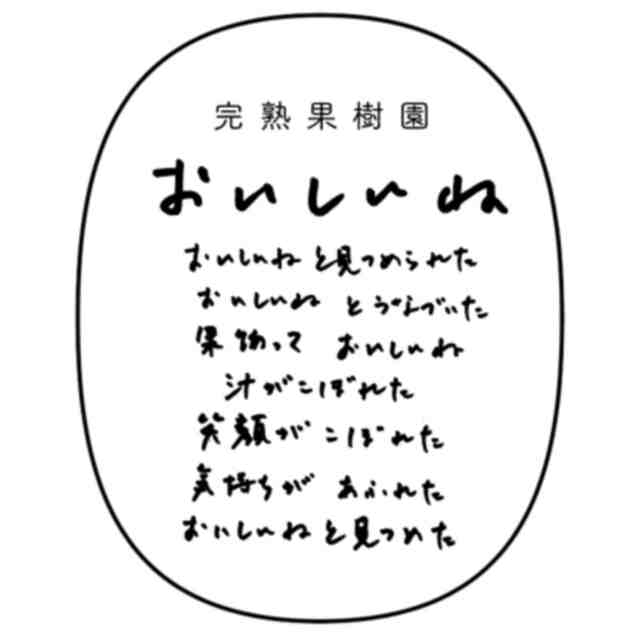 完熟果樹園
おいしいね
おいしいねと見つめられた
おいしいね とうなづいた
果物って おいしいね
汁がこぼれた
笑顔が こぼれた
気持ちが あふれた
おいしいねと見つめた